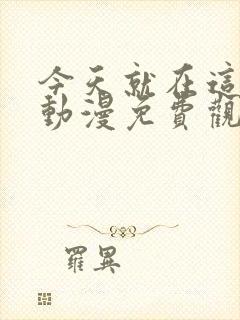 今天就在這
動漫免費觀
羅異